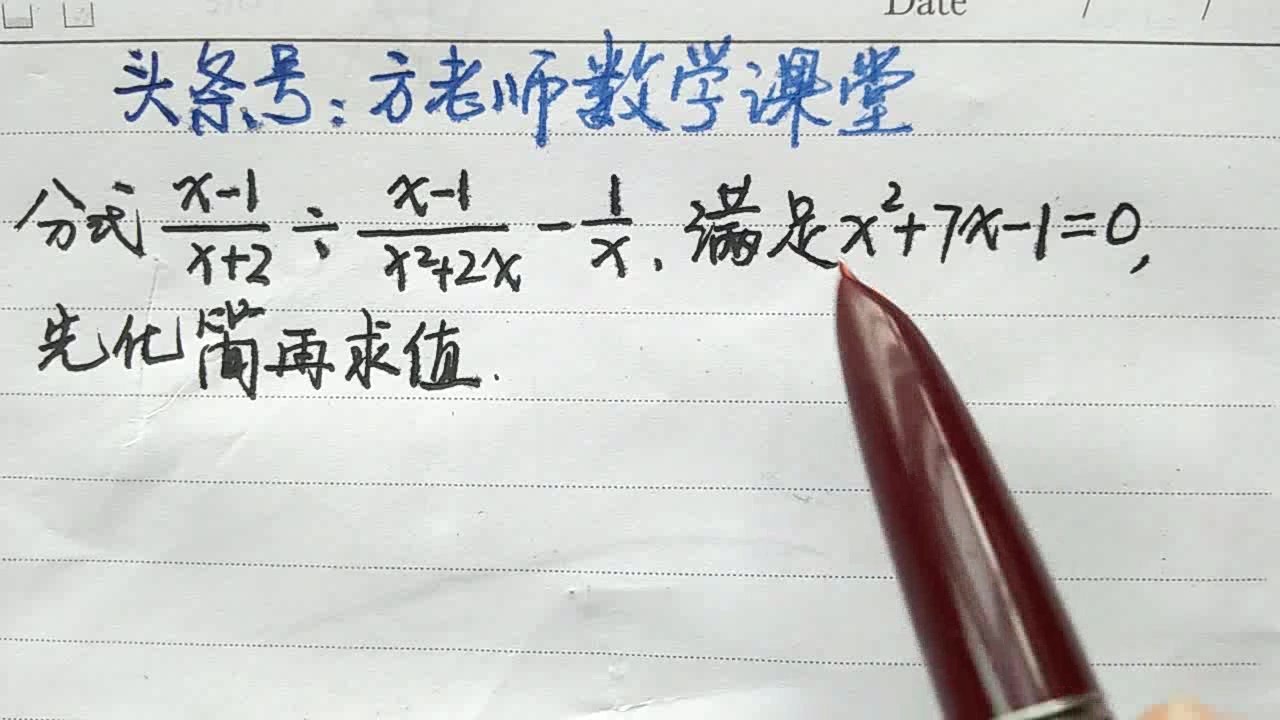 Date / /
头条号:方老师数学课堂
分式 (x-1)/(x+2) ÷ (x-1)/(x²+2x) - 1/x. 满足x²+7x-1=0,
先化简再求值.